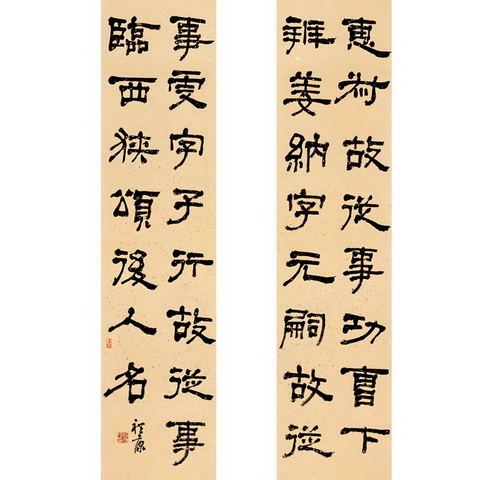 惠叔故從事功曹下
辨姜納字元嗣故從
事虔字子行故從事
臨西狹頌後人名